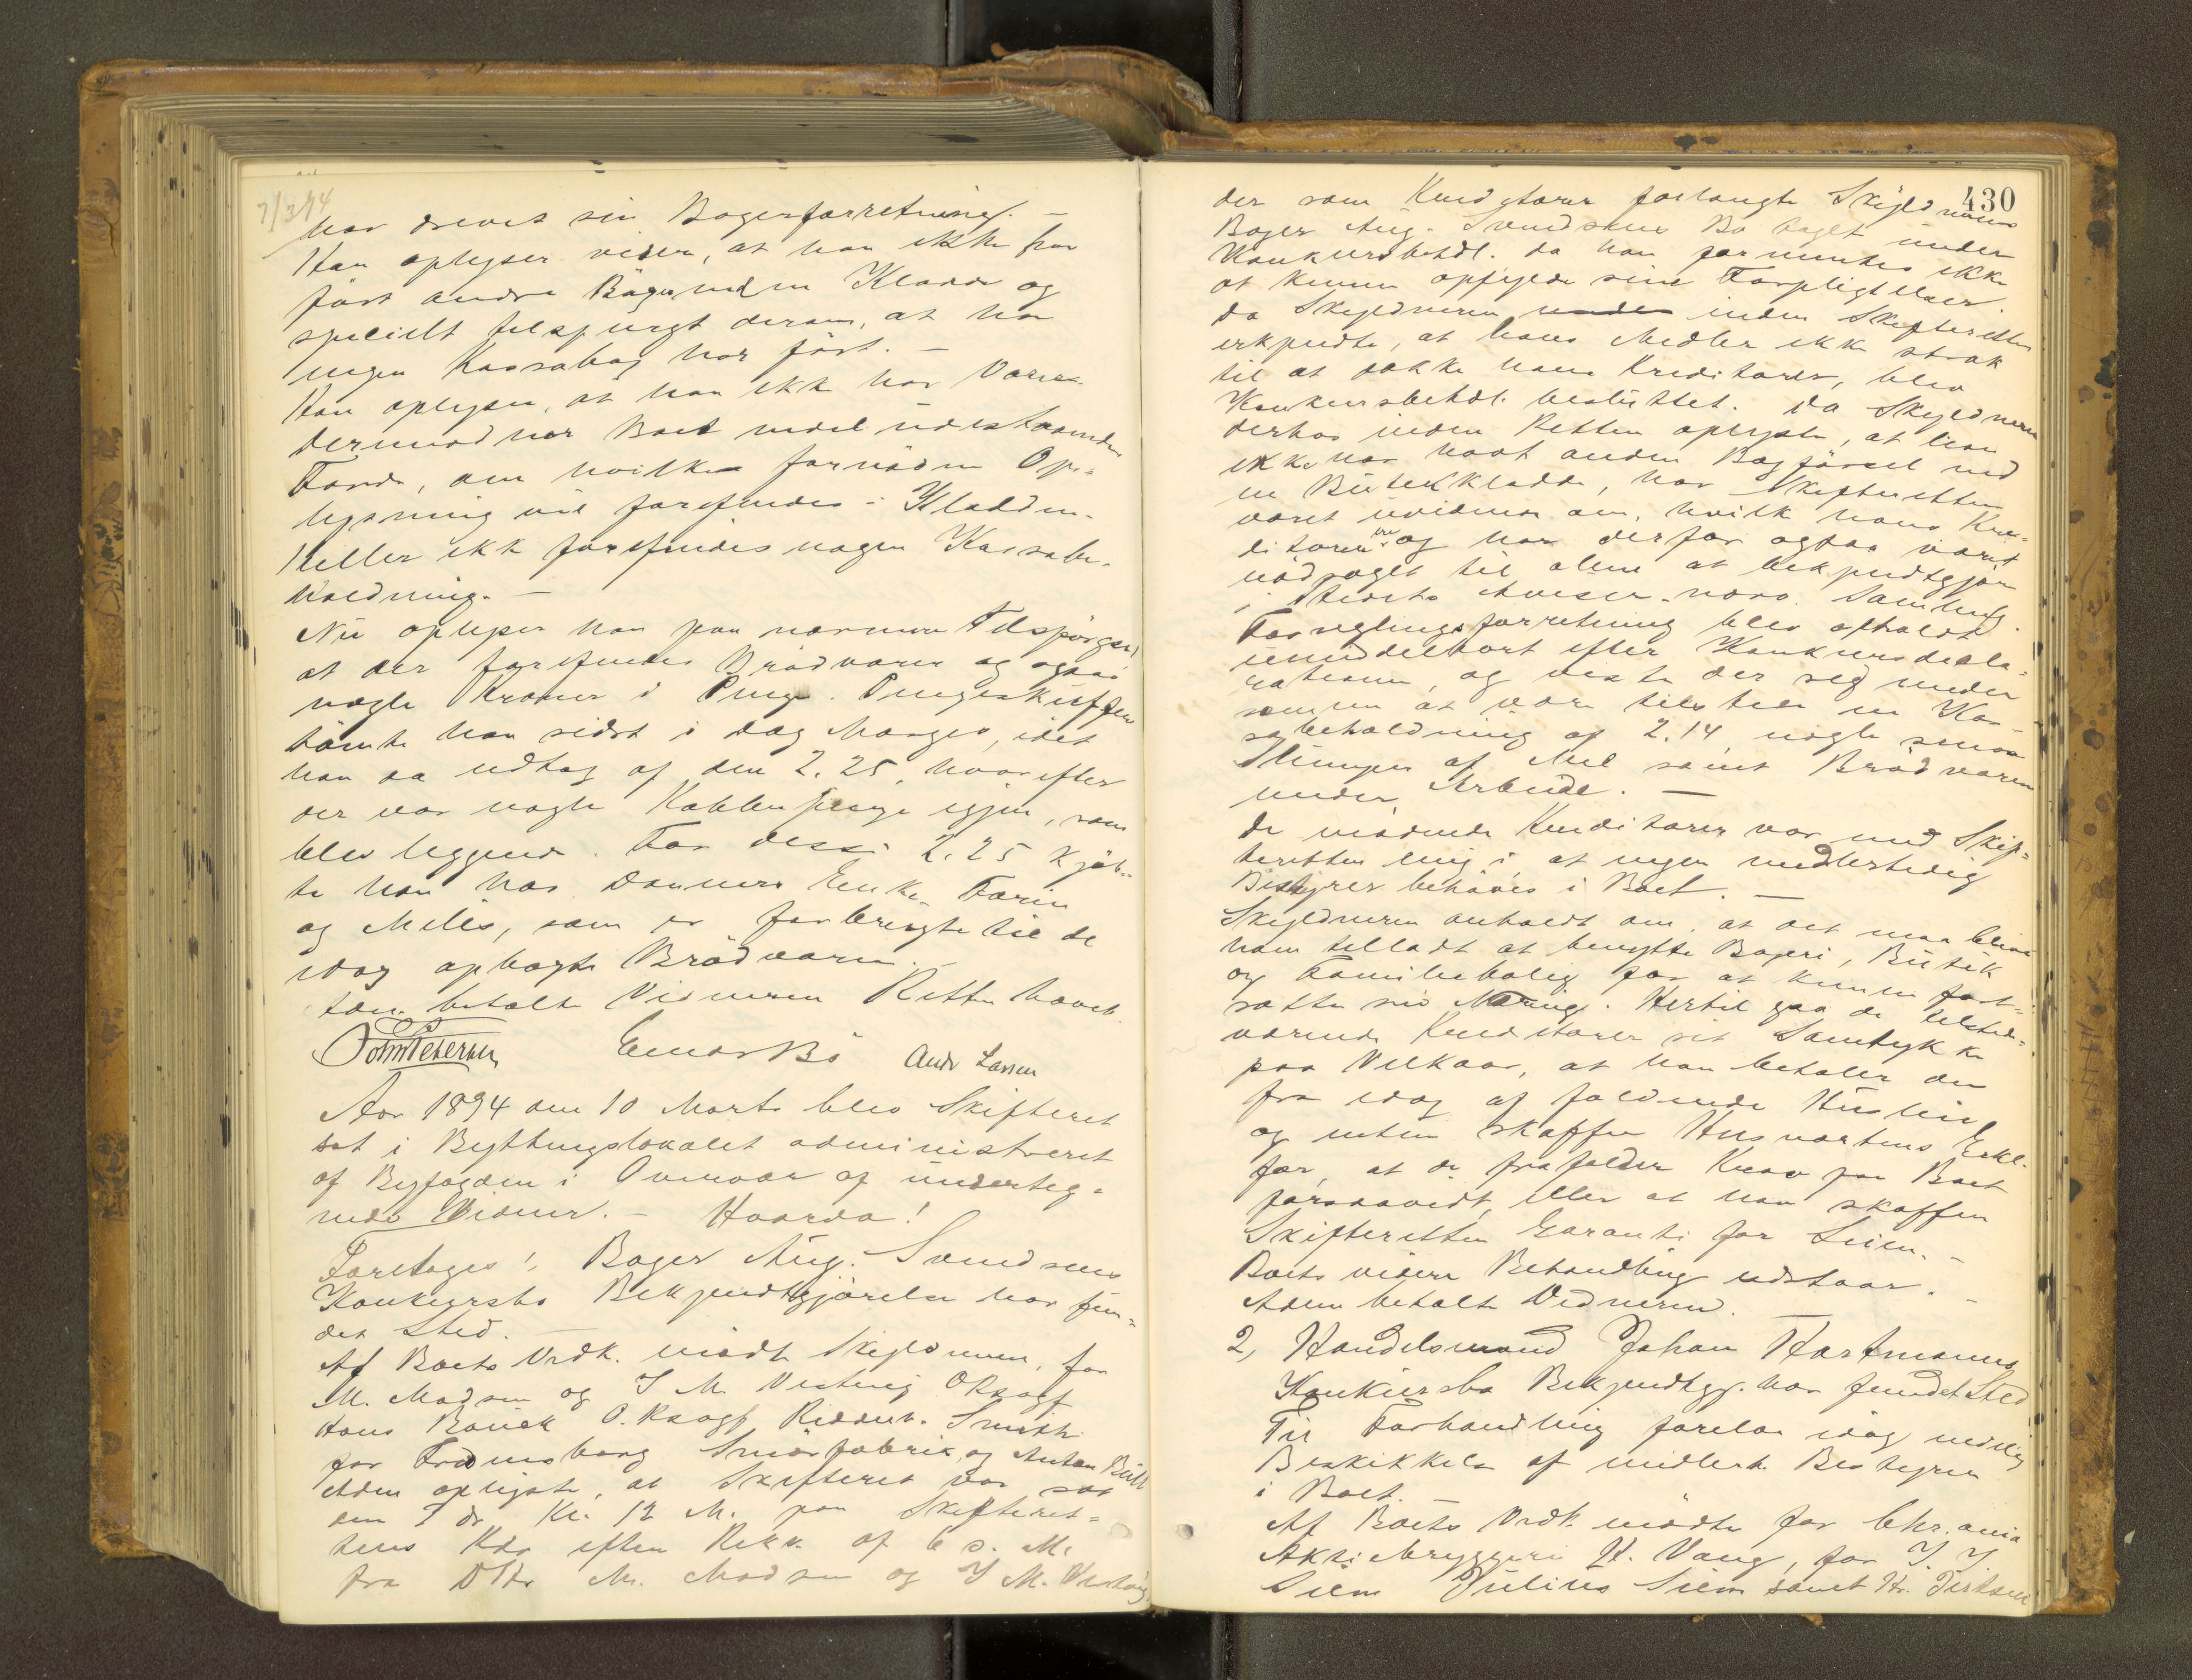 7/3 94
har drevet sin Bagerforretning. —
Han oplyser videre, at han ikke har
ført andre Bøger end en Kladde og
specielt tilspurgt derom, at han
ingen Kassabog har ført. —
Han oplyser, at han ikke har Varer.
Dermod har Boet endel udestaaende
Fordr, om hvilke fornøden Op-
lysning vil forefindes i Kladden.
Heller ikke forefindes nogen Kassabe-
holdning. —
Nu oplyser han paa nærmere Tilspørgsel,
at der forefindes Brødvarer og ogsaa
nogle Kroner i Penge. Pengeskuffen
tømte han sidst i dag Morges, idet
han da udtog af den 2.25, hvorefter
der var nogle Kobberpenge igjen, som
blev liggende. For disse 2.25 kjøb-
te han hos Danners Enke Farin
og Melis, som er forbrugte til de
idag opbagte Brødvarer.
Den betalte Vidneren Retten hævet.
John Petersen Einar Bö Andr Larsen
Aar 1894 den 10 Marts blev Skifteret
sat i Bythingslokalet administreret
af Byfogden i Overvær af underteg-
nede Vidner. — Hvorda!
Foretages 1, Bager Aug. Svendsens
Konkursbo Bekjendtgjørelse har fun-
det Sted. —
Af Boets Vedk. mødte Skyldneren, for
M. Madsen og J M Vesteng ORsagf
Hans Bauck O. Rsagf Reddere. Smith
for Fredensborg Smørfabrik og Anton Bull
Adm oplyste, at Skifteret var sat
den 7 ds Kl. 12 M. paa Skifteret-
tens Kdr efter Rekv. af 6 s. M.
fra DHr M. Madsen og J M. Vesteng,
430
der som Kreditorer forlangte Skyldneren
Bager Aug. Svendsens Bo taget under
Konkursbehdl. da han formentes ikke
at kunne opfylde sine Forpligtelser
Da Skyldneren inden Skifteretten
erkjendte, at hans Midler ikke strak
til at dække hans Kreditorer, blev
Konkursbehdl. besluttet. Da Skyldneren
derhos inden Retten oplyste, at han
ikke har havt anden Bogførsel end
en Butikkladde, har Skifteretten
været uvidende om, hvilke hans Kre-
ditorer ere og har derfor ogsaa været
nødsaget til alene at bekjendtgjøre
i Stedets Aviser nærv. Samling.
Forseglingsforretning blev afholdt
umiddelbart efter Konkursdekla-
rationen, og viste der sig under
samme at være tilstede en Kas-
sabeholdning af 2.14, nogle smaa
Slumper af Mel samt Brødvarer
under Arbeide. —
De mødende Kreditorer var med Skif-
teretten enig i, at ingen midlertidig
Bestyrer behøves i Boet. —
Skyldneren anholdt om, at det maa blive
ham tilladt at benytte Bageri, Butik
og Familiebolig for at kunne fort-
sætte sin Næring. Hertil gav de tilstede-
værende Kreditorer sit Samtykke
paa Vilkaar, at han betaler den
fra idag af faldende Husleie
og enten skaffer Husværtens Erkl.
for, at de frafalder Krav paa Boet
forsaavidt, eller at han skaffer
Skifteretten Garanti for Leien. —
Boets videre Behandling udstaar. —
Adm betalte Vidnerne.
2, Handelsmand Johan Hartmanns
Konkursbo Bekjendtgj. har fundet Sted
Til Forhandling forelaa idag endelig
Beskikkelse af midlert. Bestyrer
i Boet.
Af Boets Vedk. mødte for Chr.ania
Aktiebryggeri H. Vang, for J. J.
Siem Julius Siem samt Hr. Dirksen